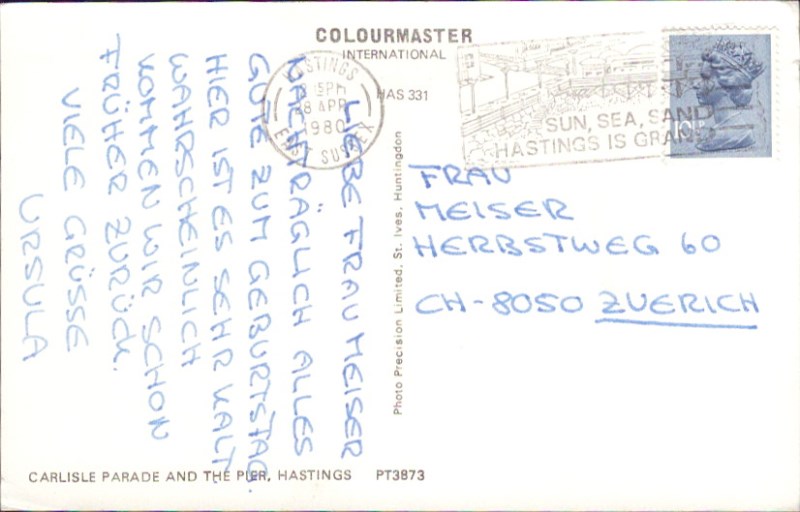 COLOURMASTER
INTERNATIONAL
HAS 331
HASTINGS
PM
8 APR
1980
EAST SUSSEX
SUN, SEA, SAND
HASTINGS IS GRAND
LIEBE FRAU MEISER
NACHTRÄGLICH ALLES
GUTE ZUM GEBURTSTAG.
HIER IST ES SEHR KALT
WAHRSCHEINLICH
KOMMEN WIR SCHON
FRÜHER ZURÜCK.
VIELE GRÜSSE
URSULA
Photo Precision Limited, St. Ives, Huntingdon
FRAU
MEISER
HERBSTWEG 60
CH-8050 ZUERICH
CARLISLE PARADE AND THE PIER, HASTINGS PT3873